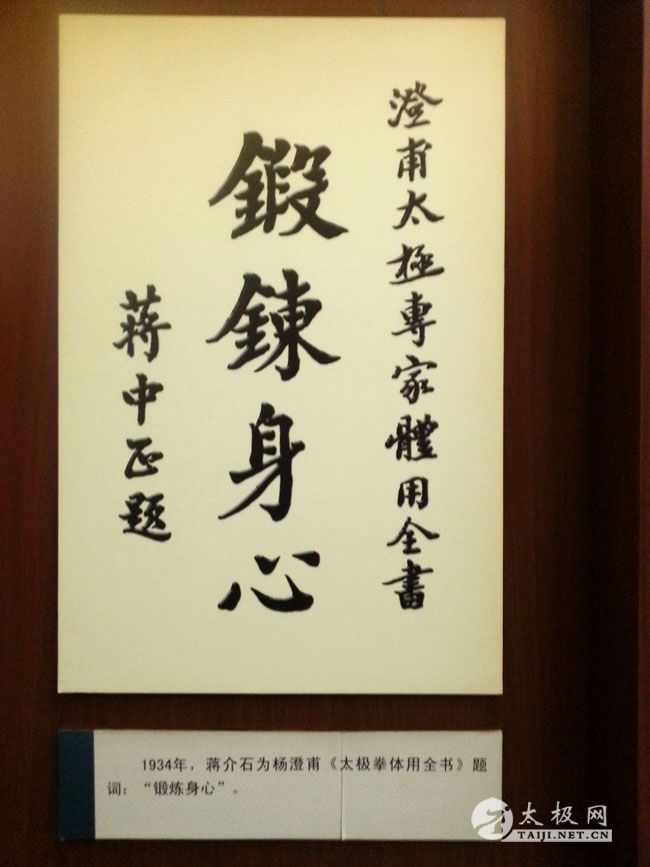 澄甫太極專家體用全書
鍛鍊身心
蔣中正題
1934年，蒋介石为杨澄甫《太极拳体用全书》题
词：“锻炼身心”。
太极网
TAIJI.NET.CN